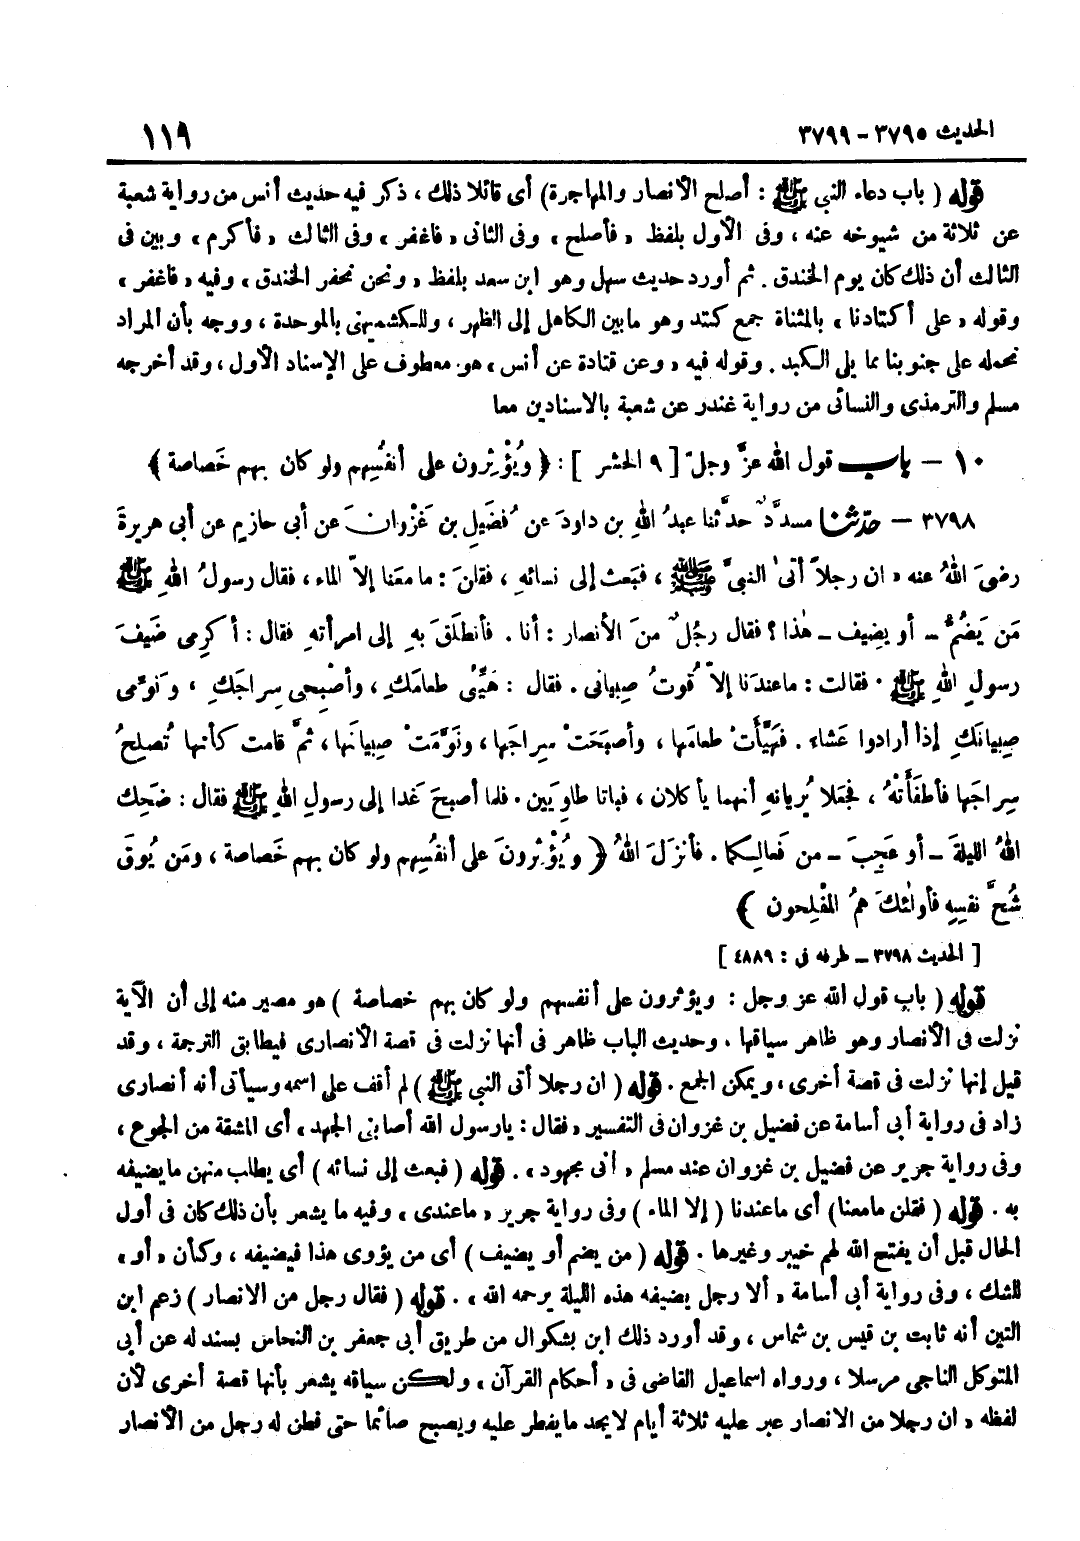 الحديث ٣٧٩٥ - ٣٧٩٩ ١١٩
قوله ( باب دعاء النبي ﷺ : أصلح الأنصار والمهاجرة) أى قائلا ذلك ، ذكر فيه حديث أنس من رواية شعبة
عن ثلاثة من شيوخه عنه ، وفى الأول بلفظ « فأصلح » وفى الثانى « فاغفر » وفى الثالث « فأكرم » وبين فى
الثالث أن ذلك كان يوم الخندق . ثم أورد حديث سهل وهو ابن سعد بلفظ « ونحن نحفر الخندق » وفيه « فاغفر »
وقوله « على أكتادنا » بالمثناة جمع كتد وهو ما بين الكاهل إلى الظهر ، وللكشميهنى بالموحدة ، ووجه بأن المراد
نحمله على جنوبنا مما يلى الكبد . وقوله فيه « وعن قتادة عن أنس » هو معطوف على الإسناد الأول ، وقد أخرجه
مسلم والترمذى والنسائى من رواية غندر عن شعبة بالاسنادين معا
١٠ – باب قول الله عزَّ وجلّ [ ٩ الحشر ] : ﴿ ويُؤْثِرون على أنفُسِهم ولو كان بهم خَصاصة ﴾
٣٧٩٨ – حدّثنا مسدَّدٌ حدَّثنا عبدُ اللهِ بن داودَ عن فُضَيلِ بن غَزْوانَ عن أبى حازمٍ عن أبى هريرةَ
رضىَ اللهُ عنه « ان رجلاً أتىٰ النبىَّ ﷺ ، فبَعث إلى نسائهِ ، فقلنَ : ما معَنا إلاّ الماء ، فقال رسولُ اللهِ ﷺ
مَن يَضُمُّ – أو يضِيف – هٰذا ؟ فقال رجُلٌ منَ الأنصار : أنا . فأنطلَقَ بهِ إلى امرأتهِ فقال : أكرِمى ضَيفَ
رسولِ اللهِ ﷺ . فقالت : ما عندَنا إلاّ قُوتُ صِبيانى . فقال : هَيِّئى طعامَكِ ، وأصْبِحى سِراجَكِ ، ونَوِّمى
صِبيانَكِ إذا أرادوا عَشاء . فهَيَّأَتْ طعامَها ، وأصبَحَتْ سِراجَها ، ونَوَّمَتْ صِبيانَها ، ثمَّ قامت كأنها تُصلِحُ
سِراجَها فأطفَأَتْهُ ، فجَعلا يُرِيانهِ أنهما يأكلان ، فباتا طاوِيَين . فلما أصبحَ غدا إلى رسولِ اللهِ ﷺ فقال : ضَحِكَ
اللهُ الليلةَ – أو عَجِبَ – من فَعالِكما . فأنزلَ اللهُ ﴿ ويُؤْثِرونَ على أنفُسِهم ولو كان بهم خَصاصة ، ومَن يُوقَ
شُحَّ نفسِهِ فأولٰئكَ همُ المفْلِحون ﴾
[ الحديث ٣٧٩٨ – طرفه فى : ٤٨٨٩ ]
قوله ( باب قول الله عز وجل : ويؤثرون على أنفسهم ولو كان بهم خصاصة ) هو مصير منه إلى أن الآية
نزلت فى الأنصار وهو ظاهر سياقها . وحديث الباب ظاهر فى أنها نزلت فى قصة الأنصارى فيطابق الترجمة ، وقد
قيل إنها نزلت فى قصة أخرى ، ويمكن الجمع . قوله ( ان رجلا أتى النبي ﷺ ) لم أقف على اسمه وسيأتى أنه أنصارى
زاد فى رواية أبى أسامة عن فضيل بن غزوان فى التفسير « فقال : يا رسول الله أصابنى الجهد » أى المشقة من الجوع ،
وفى رواية جرير عن فضيل بن غزوان عند مسلم « انى مجهود » . قوله ( فبعث إلى نسائه ) أى يطلب منهن ما يضيفه
به . قوله ( فقلن ما معنا) أى ما عندنا ( إلا الماء ) وفى رواية جرير « ما عندى » وفيه ما يشعر بأن ذلك كان فى أول
الحال قبل أن يفتح الله لهم خيبر وغيرها . قوله ( من يضم أو يضيف ) أى من يؤوى هذا فيضيفه ، وكأن « أو »
للشك ، وفى رواية أبى أسامة « ألا رجل يضيفه هذه الليلة يرحمه الله » . قوله ( فقال رجل من الانصار ) زعم ابن
التين أنه ثابت بن قيس بن شماس ، وقد أورد ذلك ابن بشكوال من طريق أبى جعفر بن النحاس بسند له عن أبى
المتوكل الناجى مرسلا ، ورواه اسماعيل القاضى فى « أحكام القرآن » ولكن سياقه يشعر بأنها قصة أخرى لأن
لفظه « ان رجلا من الانصار عبر عليه ثلاثة أيام لا يجد ما يفطر عليه ويصبح صائما حتى فطن له رجل من الأنصار